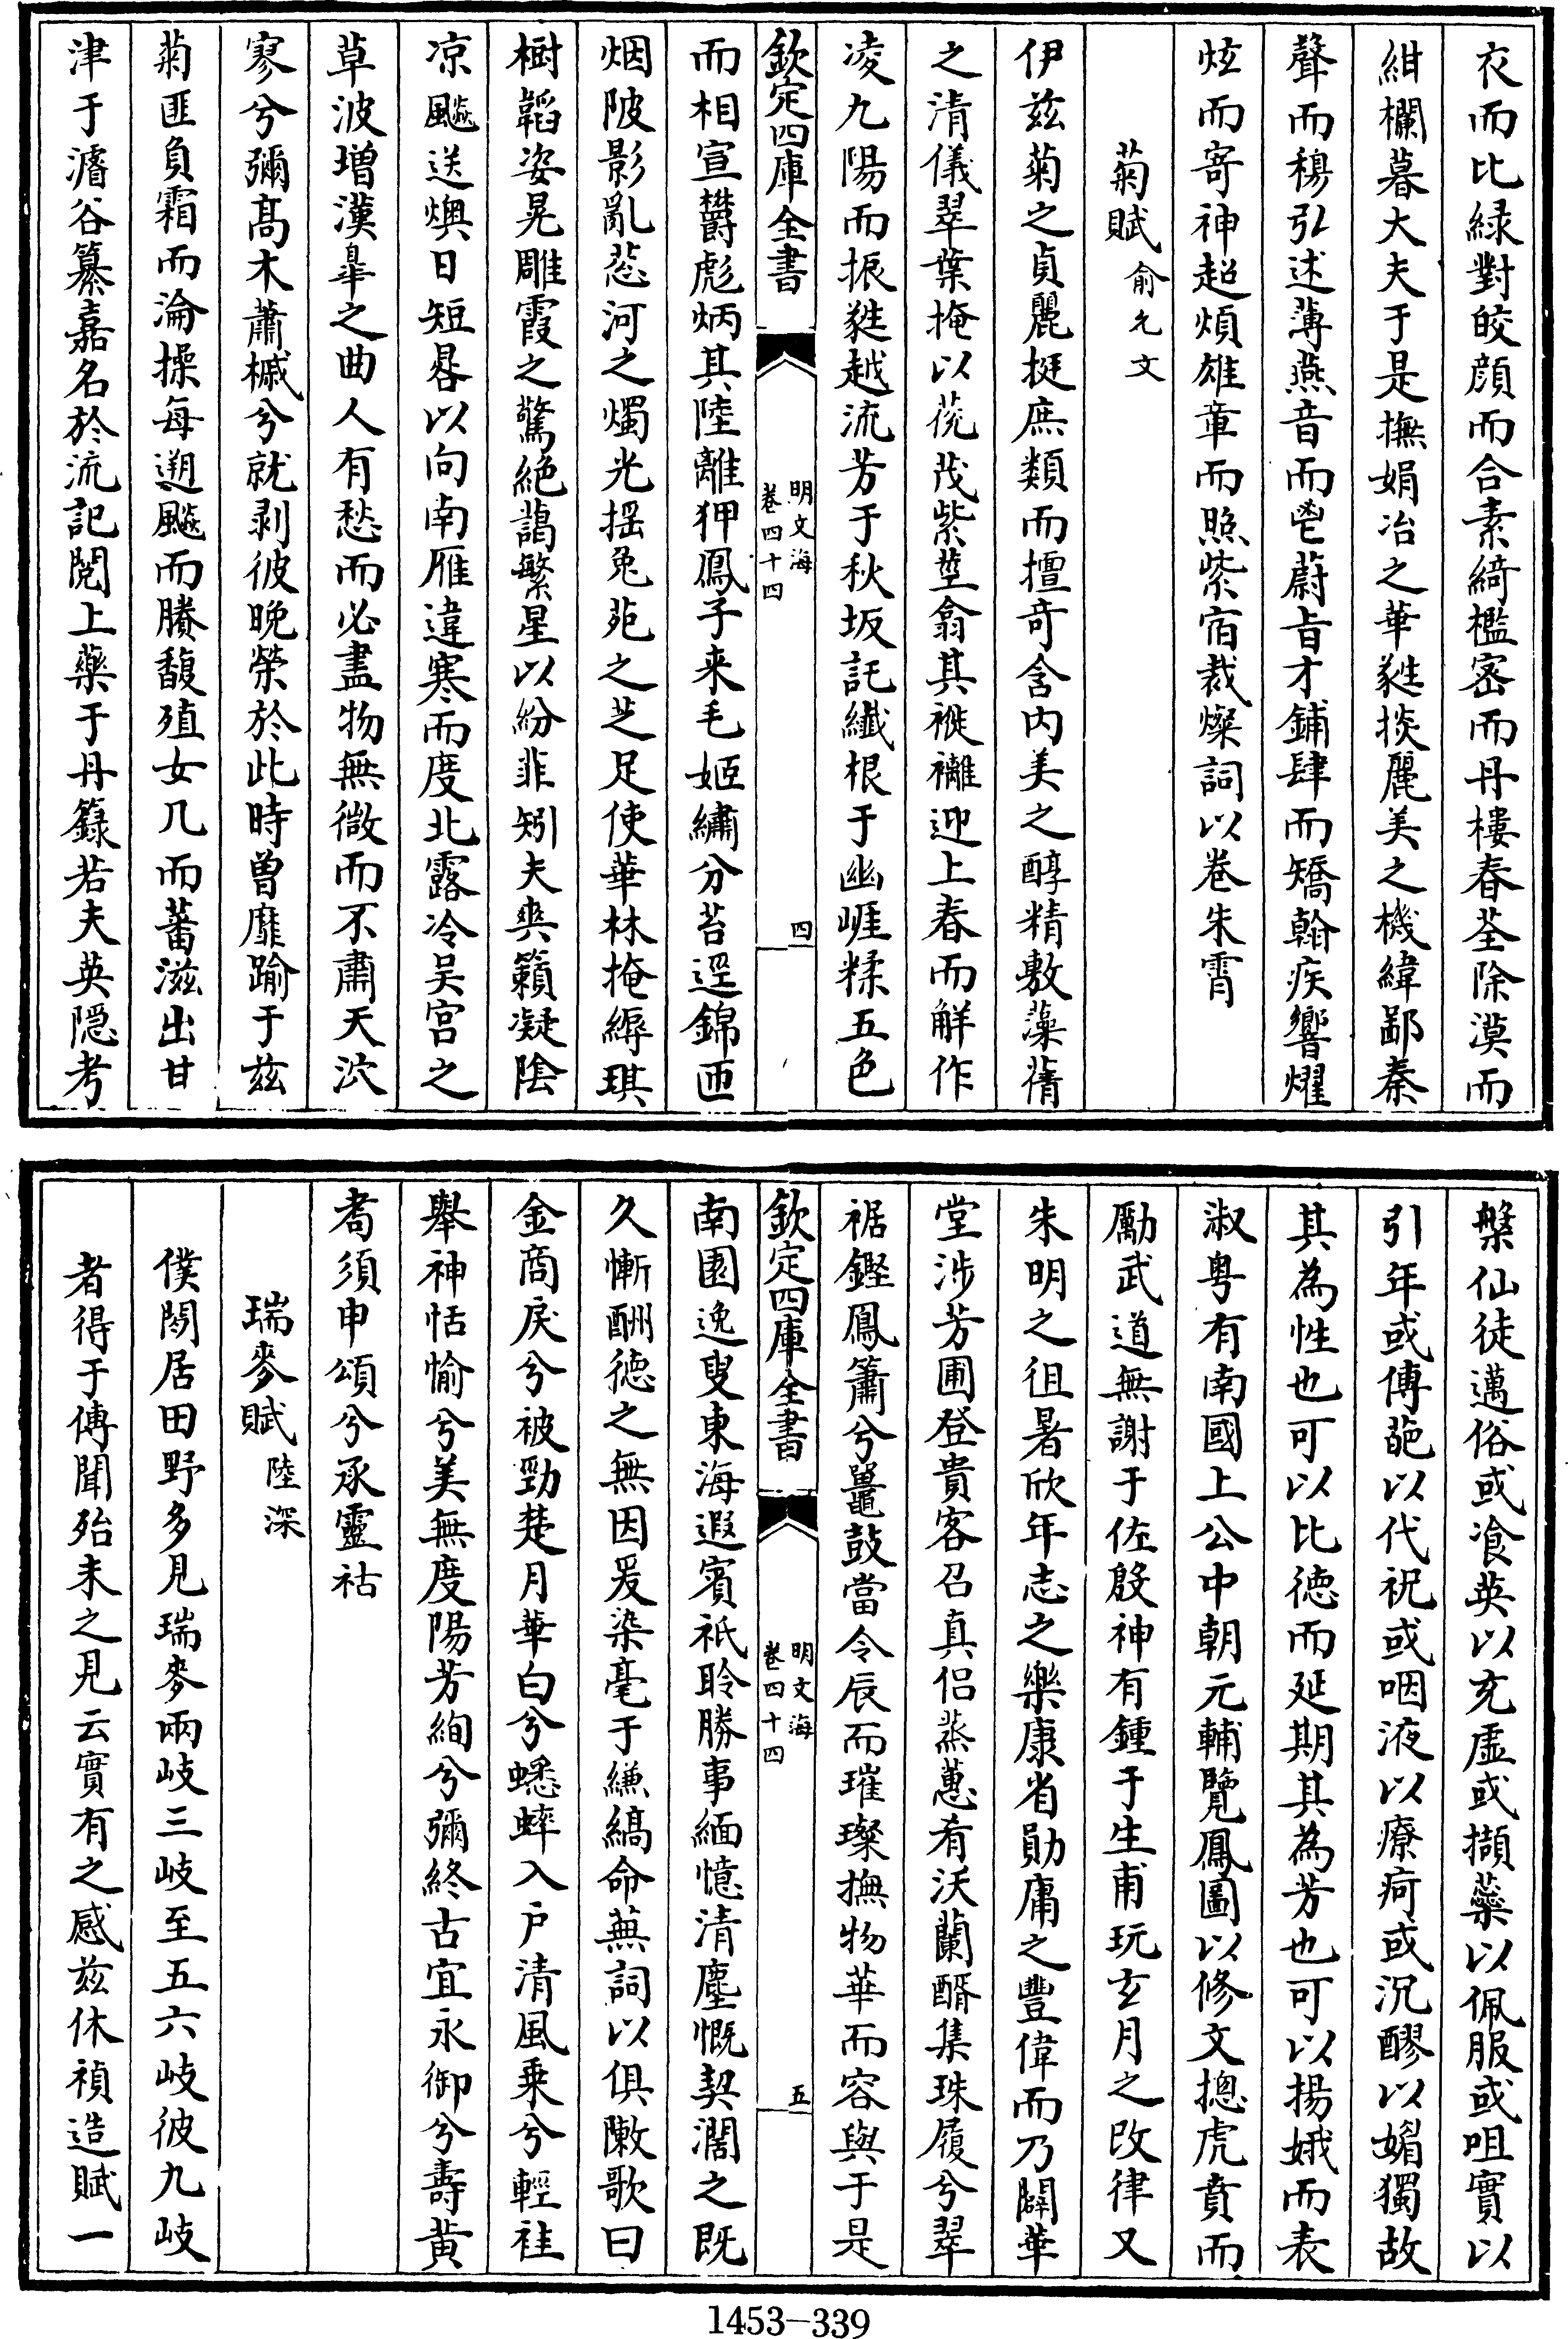 衣而比緑對皎顔而合素綺檻密而丹樓春荃除漠而
紺欄暮大夫于是撫娟冶之華㽔掞麗美之機緯鄙秦
聲而穆引述薄燕音而鬯蔚旨才鋪肆而矯翰疾響燿
炫而寄神超煩雄章而照紫宿裁燦詞以卷朱霄
菊賦俞允文
伊兹菊之貞麗挺庶類而擅奇含内美之醇精敷藻蒨
之清儀翠葉掩以莐茂紫莖翕其褷褷迎上春而觧作
凌九陽而振㽔越流芳于秋坂託纎根于幽崕糅五色
欽定四庫全書
明文海
卷四十四
四
而相宣欎彪炳其陸離狎鳳子来毛姫繡分苔逕錦匝
烟陂影亂惢河之燭光揺兎苑之芝足使華林掩縟琪
樹韜姿晃雕霞之驚絶藹繁星以紛悲矧夫爽籟凝隂
凉飈送燠日短晷以向南雁違寒而度北露冷吴宫之
草波増漢臯之曲人有愁而必盡物無微而不肅天泬
寥兮彌髙木蕭槭兮就剥彼晩榮於此時曽靡踰于兹
菊匪負霜而淪操每遡飈而勝馥殖女几而蕃滋出甘
津于濳谷纂嘉名於流記閲上藥于丹籙若夫英隠考
槃仙徒邁俗或飡英以充虚或擷藥以佩服或咀實以
引年或傅葩以代祝或咽液以療疴或沉醪以媚獨故
其為性也可以比徳而延期其為芳也可以揚娥而表
淑粤有南國上公中朝元輔覽鳳圖以修文摠虎賁而
勵武道無謝于佐殷神有鍾于生甫玩玄月之改律又
朱明之徂暑欣年志之樂康省勛庸之豐偉而乃闢華
堂涉芳圃登貴客召真侣蒸蕙肴沃蘭醑集珠履兮翠
裾鏗鳳簫兮鼉鼓當令辰而璀璨撫物華而容與于是
欽定四庫全書
明文海
卷四十四
五
南園逸叟東海遐賓祇聆勝事緬憶清塵慨契濶之既
久慚酬徳之無因爰染毫于縑縞命蕪詞以俱陳歌曰
金商戻兮被勁楚月華白兮蟋蟀入户清風乗兮輕袿
舉神恬愉兮美無度陽芳絢兮彌終古宜永御兮夀黄
耈須申頌兮承靈祜
瑞麥賦陸深
僕閒居田野多見瑞麥兩岐三岐至五六岐彼九岐
者得于傅聞殆未之見云實有之感兹休禎造賦一
1453-339